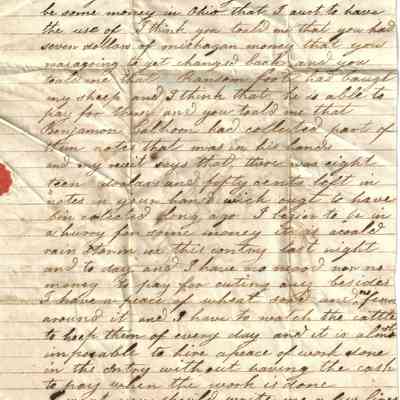 be some money in Ohio that I aust to have
the use of I think you toald me that you had
seven dollars of michagan money that you
was going to get changed back and you
toald me that Ransom foot had baugh
my sheep and I think that he is able to
pay for them and you toald me that
Benjamon had collected part of
them notes that was in his hands
and my reciet says that there was eight
teen dolars and fifty cents left in
notes in your hand wich ought to have
bin colected long ago I begin to be in
a hurry for some money it is a coald
rain storm in this contry last night
and to day and I have no wood nor no
money to pay for cuting any besides
I have a peace of wheat and no fence
around it and I have to watch the cattle
to keep them of every day and it is almost
imposable to hire a peace of work done
in this contry without having the cash
to pay when the work is done
I want you should write me a few lines